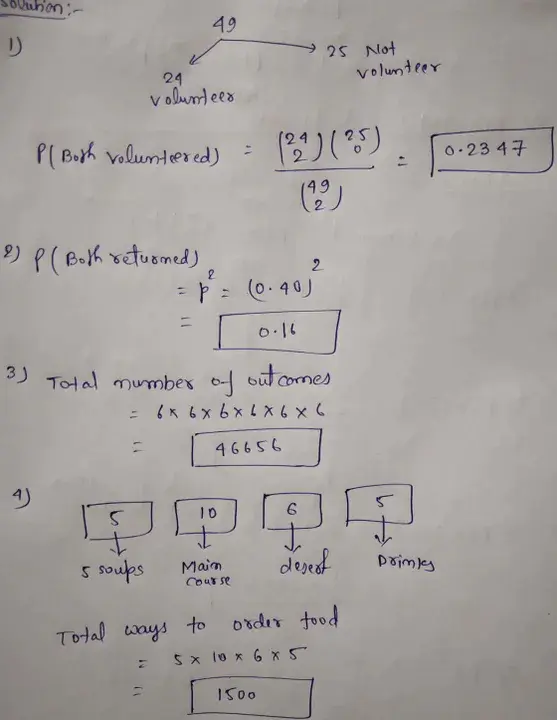 Solution:-
1)
49
25 Not
volunteer
24
volunteer
P(Both volunteered) = (24 2)(25 0) / (49 2) = 0.2347
2) P(Both returned)
= p² = (0.40)²
= 0.16
3) Total number of outcomes
= 6 x 6 x 6 x 6 x 6 x 6
= 46656
4)
5 10 6 5
5 soups Main course desert Drinks
Total ways to order food
= 5 x 10 x 6 x 5
= 1500